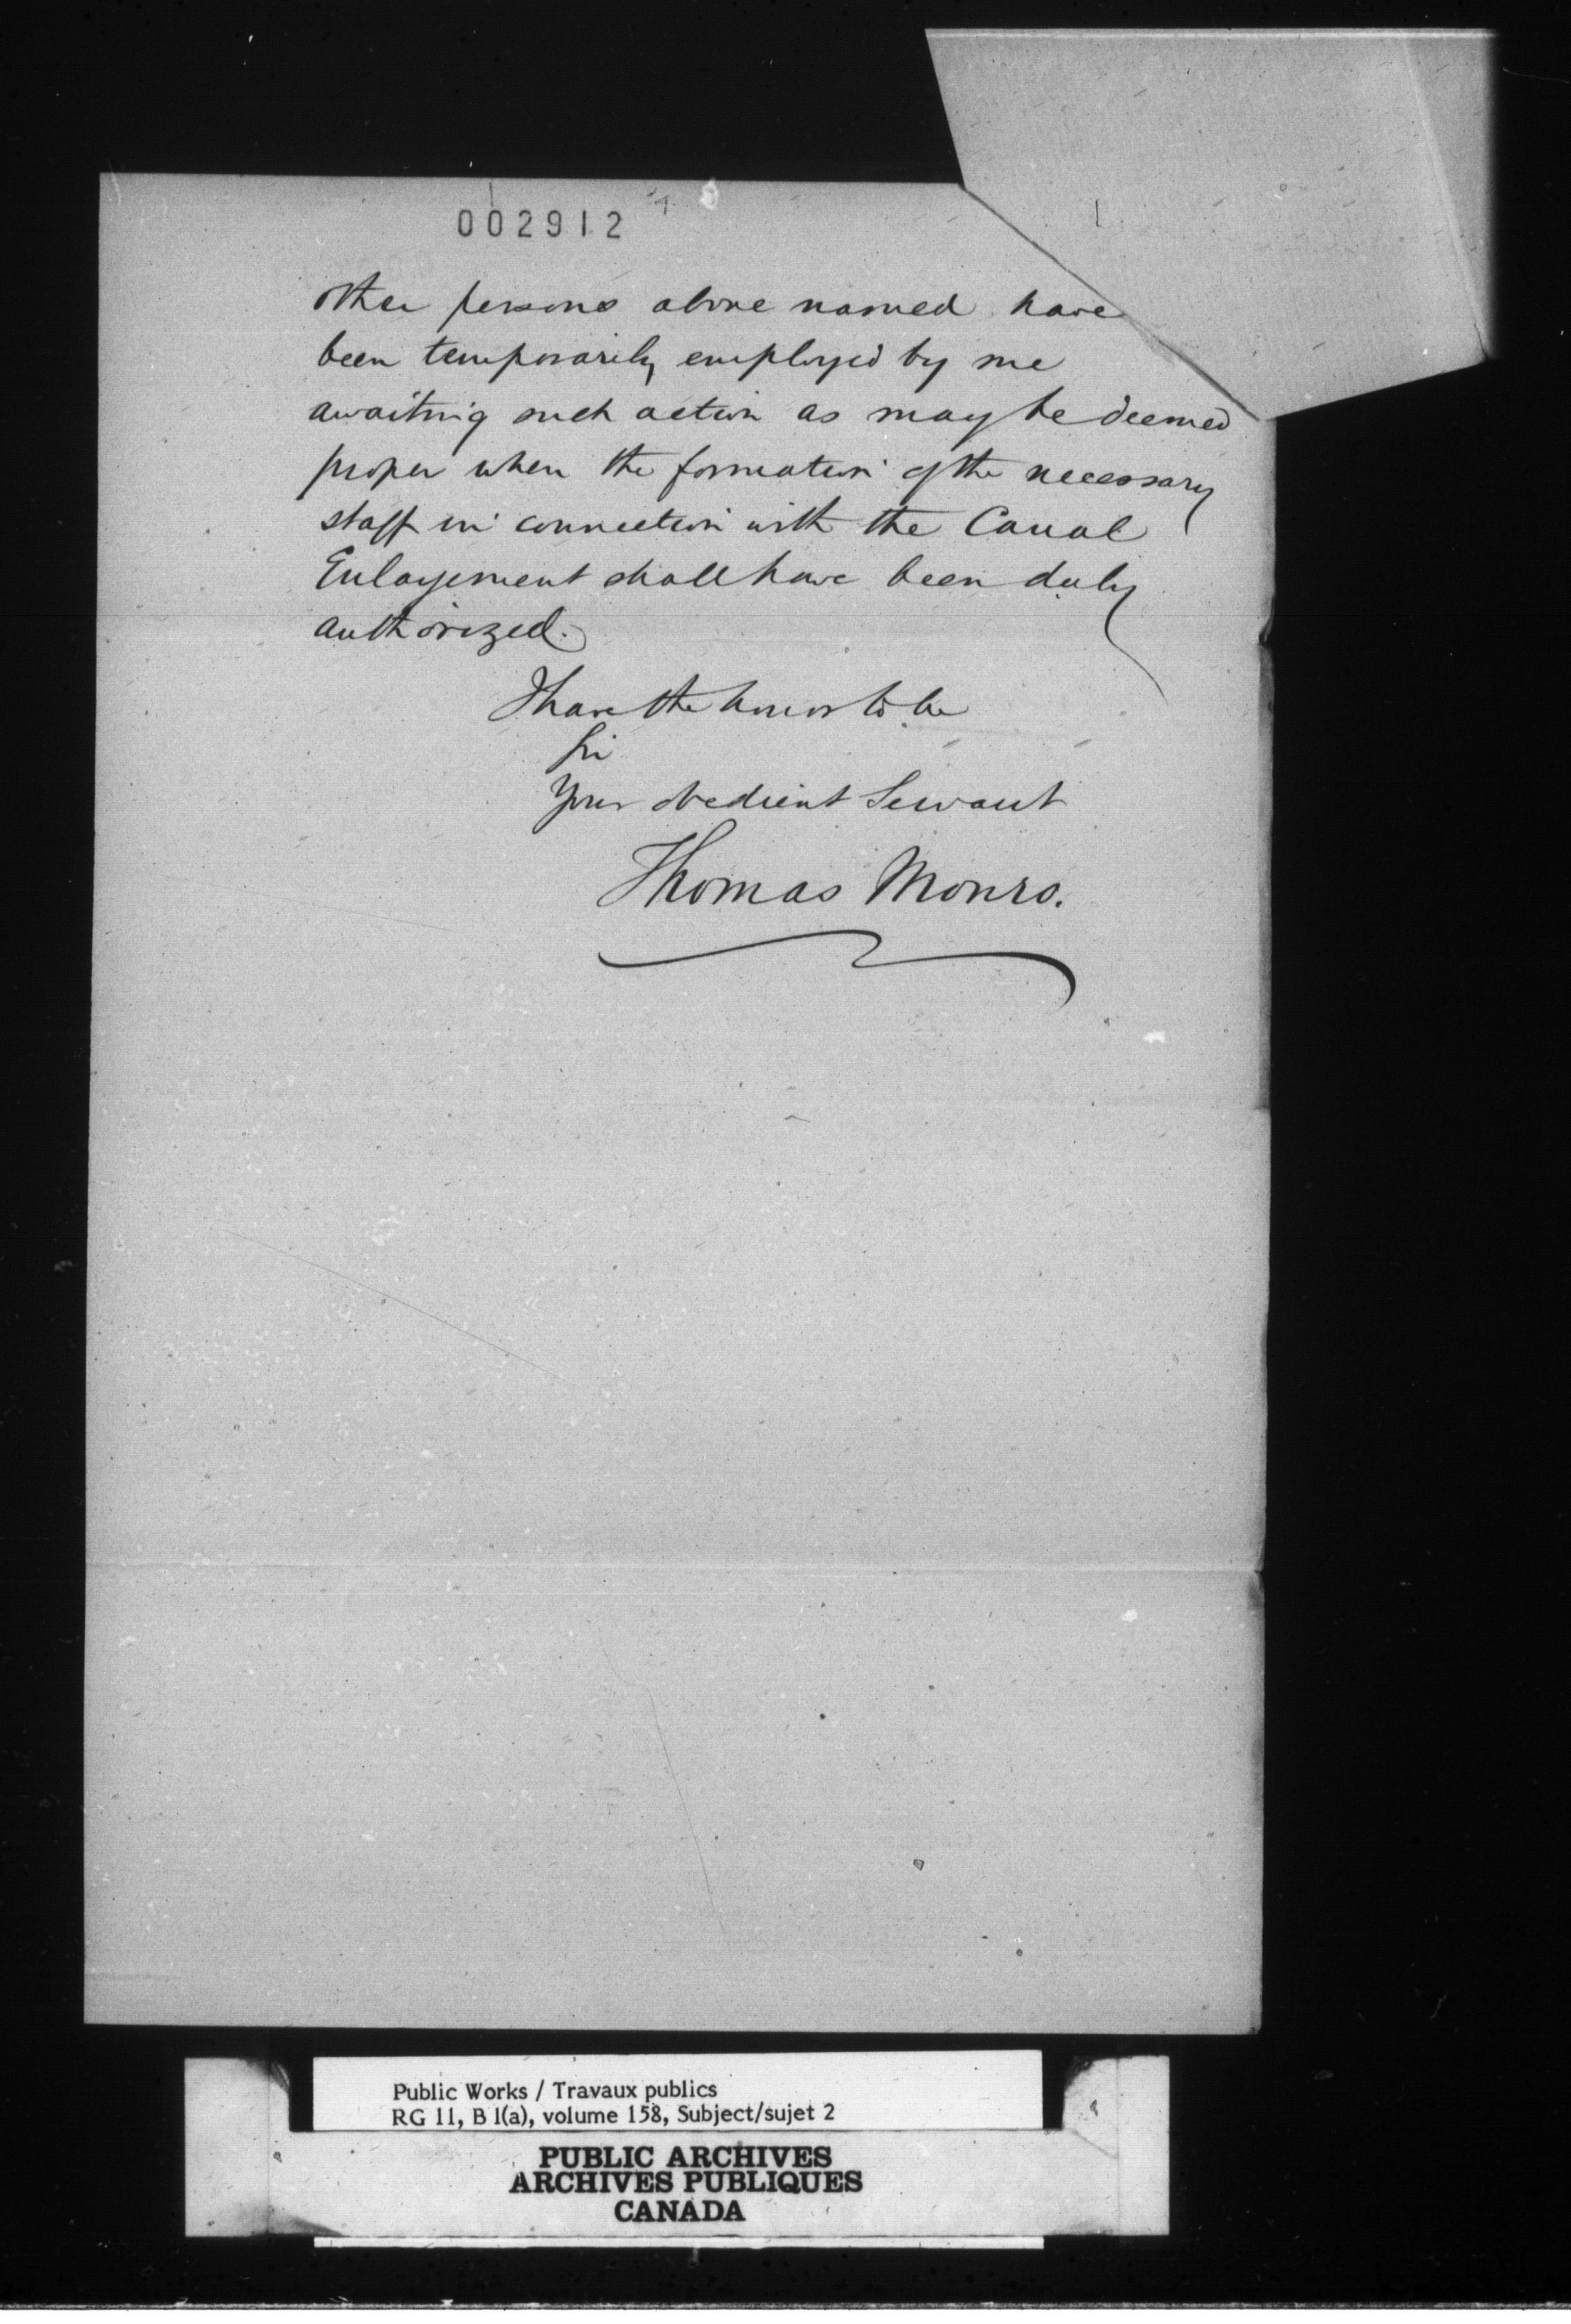 002912
other persons above named have
been temporarily employed by me
awaiting such action as may be deemed
proper when the formation of the necessary
staff in connection with the Canal
Enlargement shall have been duly
authorized.
I have the honor to be
Sir
Your obedient Servant
Thomas Monro.
Public Works / Travaux publics
RG 11, B 1(a), volume 158, Subject/sujet 2
PUBLIC ARCHIVES
ARCHIVES PUBLIQUES
CANADA